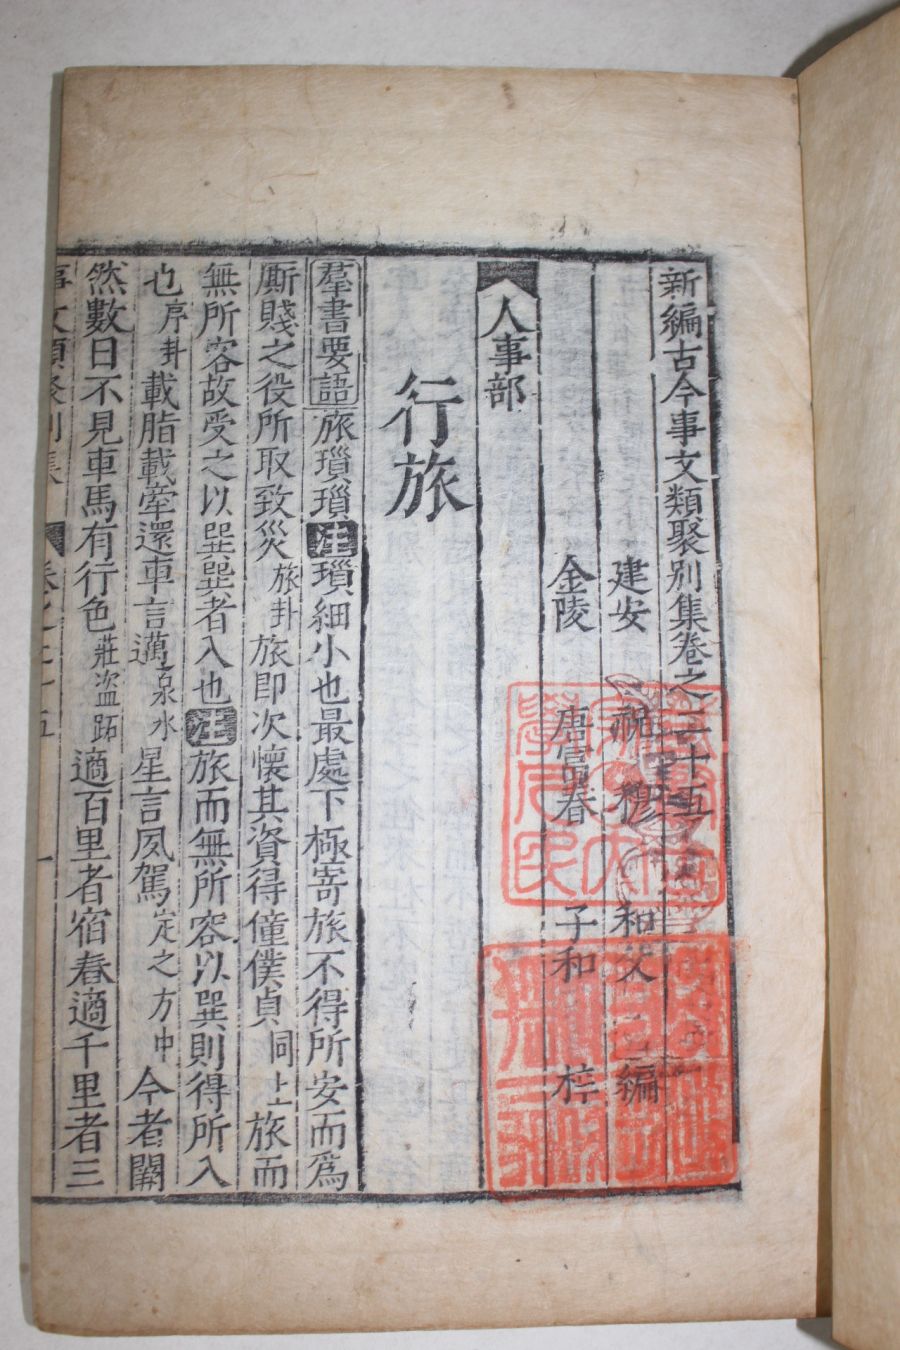 新編古今事文類聚別集卷之二十五
建安 祝穆 和父 編
金陵 唐富春 子和 梓
人事部
行旅
羣書要語 旅瑣瑣 注 瑣細小也最處下極寄旅不得所安而爲
厮賤之役所取致災 旅卦 旅即次懷其資得僮僕貞 同上 旅而
無所容故受之以巽巽者入也 注 旅而無所容以巽則得所入
也 序卦 載脂載舝還車言邁 泉水 星言夙駕 定之方中 今者闕
然數日不見車馬有行色 莊盗跖 適百里者宿舂適千里者三
事文類聚別集 卷之二十五 一